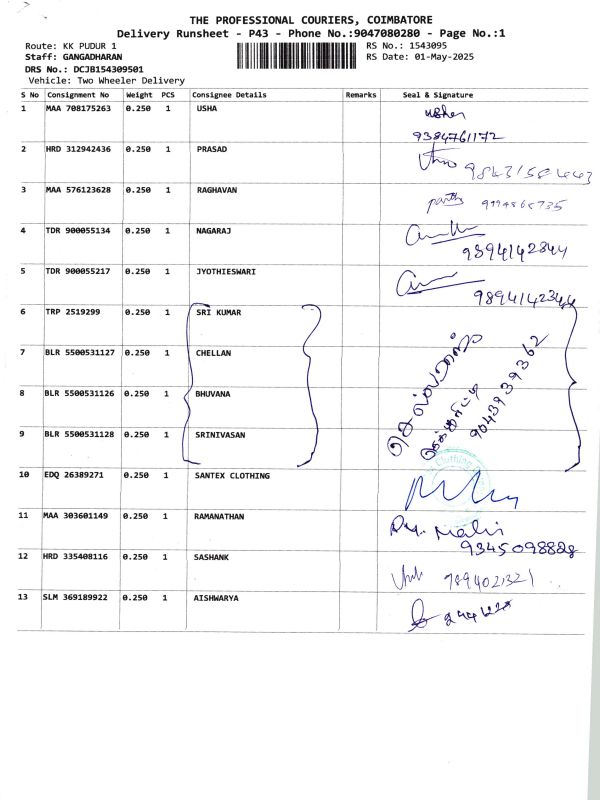 THE PROFESSIONAL COURIERS, COIMBATORE
Delivery Runsheet - P43 - Phone No.:9047080280 - Page No.:1
Route: KK PUDUR 1 RS No.: 1543095
Staff: GANGADHARAN RS Date: 01-May-2025
DRS No.: DCJB154309501
Vehicle: Two Wheeler Delivery
S No Consignment No Weight PCS Consignee Details Remarks Seal & Signature
1 MAA 708175263 0.250 1 USHA usha
9384761172
2 HRD 312942436 0.250 1 PRASAD
3 MAA 576123628 0.250 1 RAGHAVAN
4 TDR 900055134 0.250 1 NAGARAJ
9894142844
5 TDR 900055217 0.250 1 JYOTHIESWARI
6 TRP 2519299 0.250 1 SRI KUMAR
7 BLR 5500531127 0.250 1 CHELLAN
8 BLR 5500531126 0.250 1 BHUVANA
9 BLR 5500531128 0.250 1 SRINIVASAN
9043939362
10 EDQ 26389271 0.250 1 SANTEX CLOTHING
11 MAA 303601149 0.250 1 RAMANATHAN
9345098828
12 HRD 335408116 0.250 1 SASHANK
7894021321
13 SLM 369189922 0.250 1 AISHWARYA